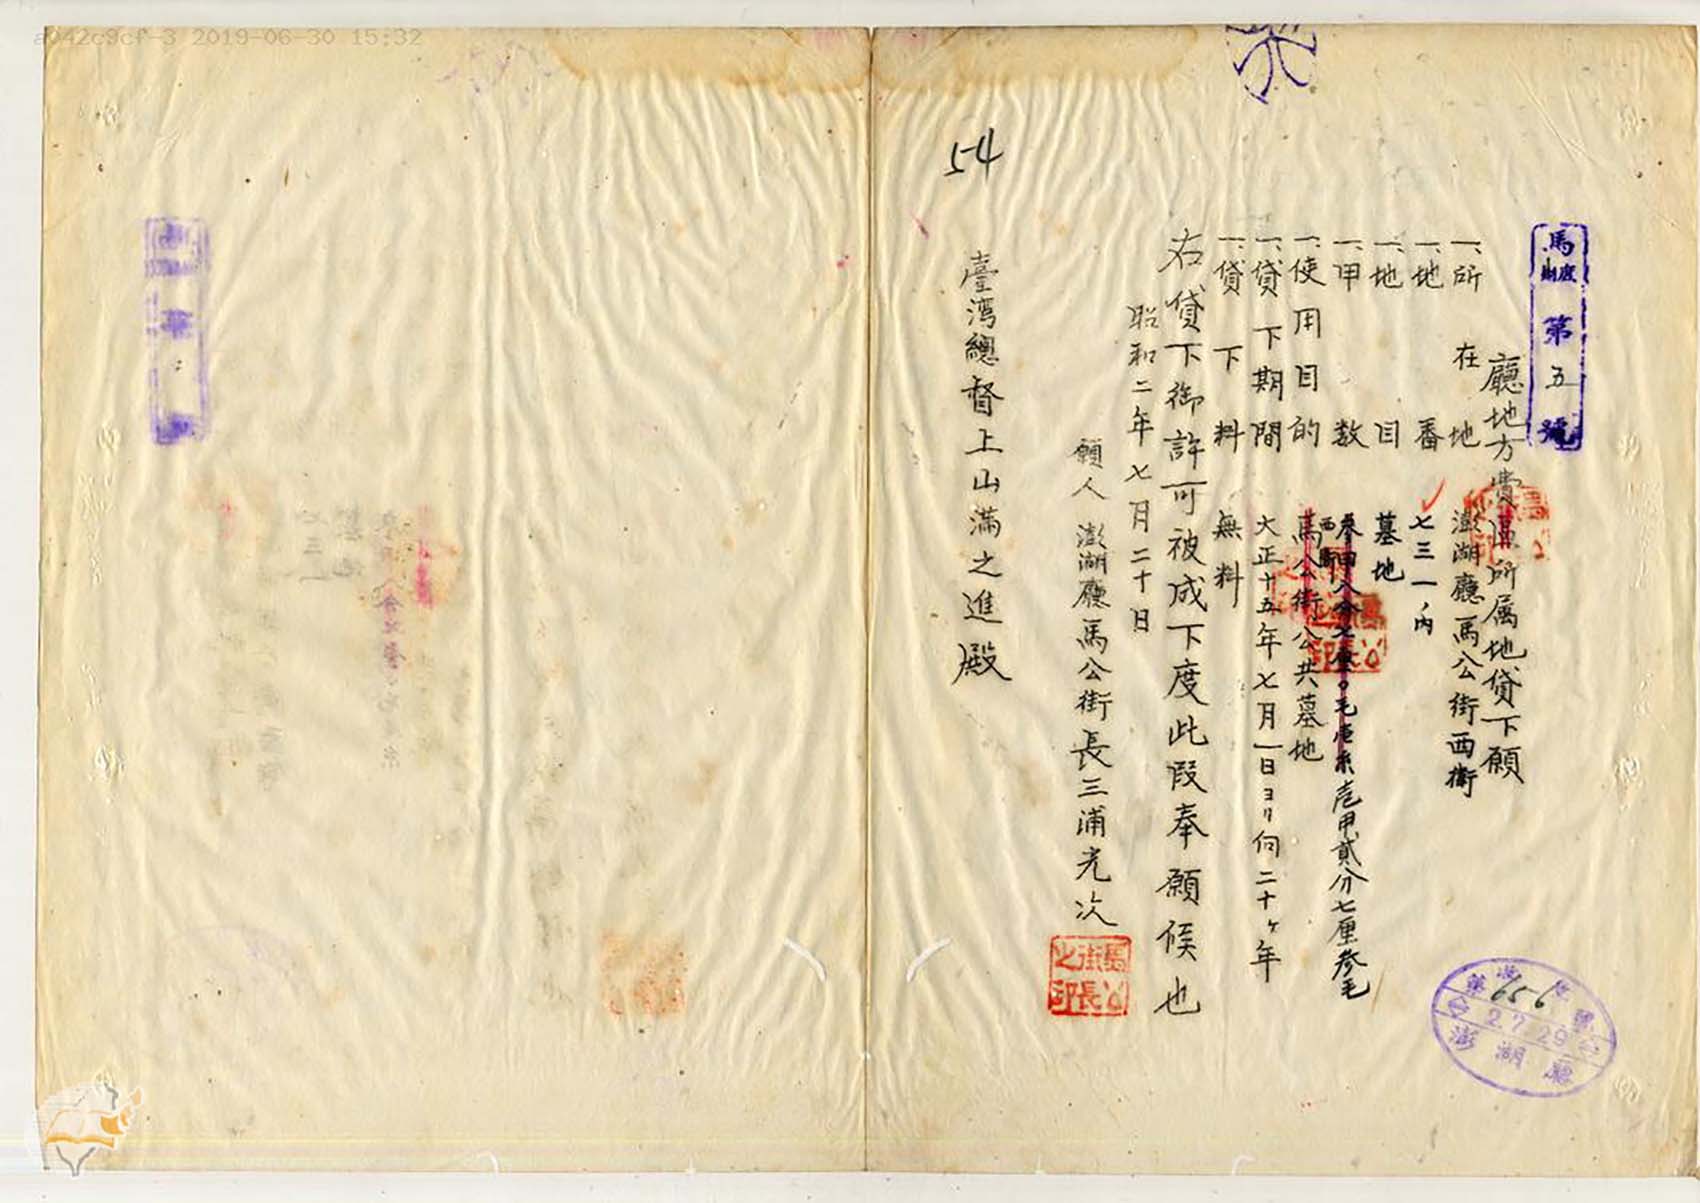 a042c9cf-3 2019-06-30 15:32
馬庶財第五號
廳地方費區所属地貸下願
一、所在地 澎湖廳馬公街西衛
一、地番 七三一ノ内
一、地目 墓地
一、甲数 参甲八分七厘〇毛壱糸 壱甲貳分七厘参毛
一、使用目的 馬公街西衛公共墓地
一、貸下期間 大正十五年七月一日ヨリ向二十ヶ年
一、貸下料 無料
右貸下御許可被成下度此段奉願候也
昭和二年七月二十日
願人 澎湖廳馬公街長三浦光次
馬公街長之印
臺湾總督上山満之進殿
54
第656號
2.7.29
澎湖廳